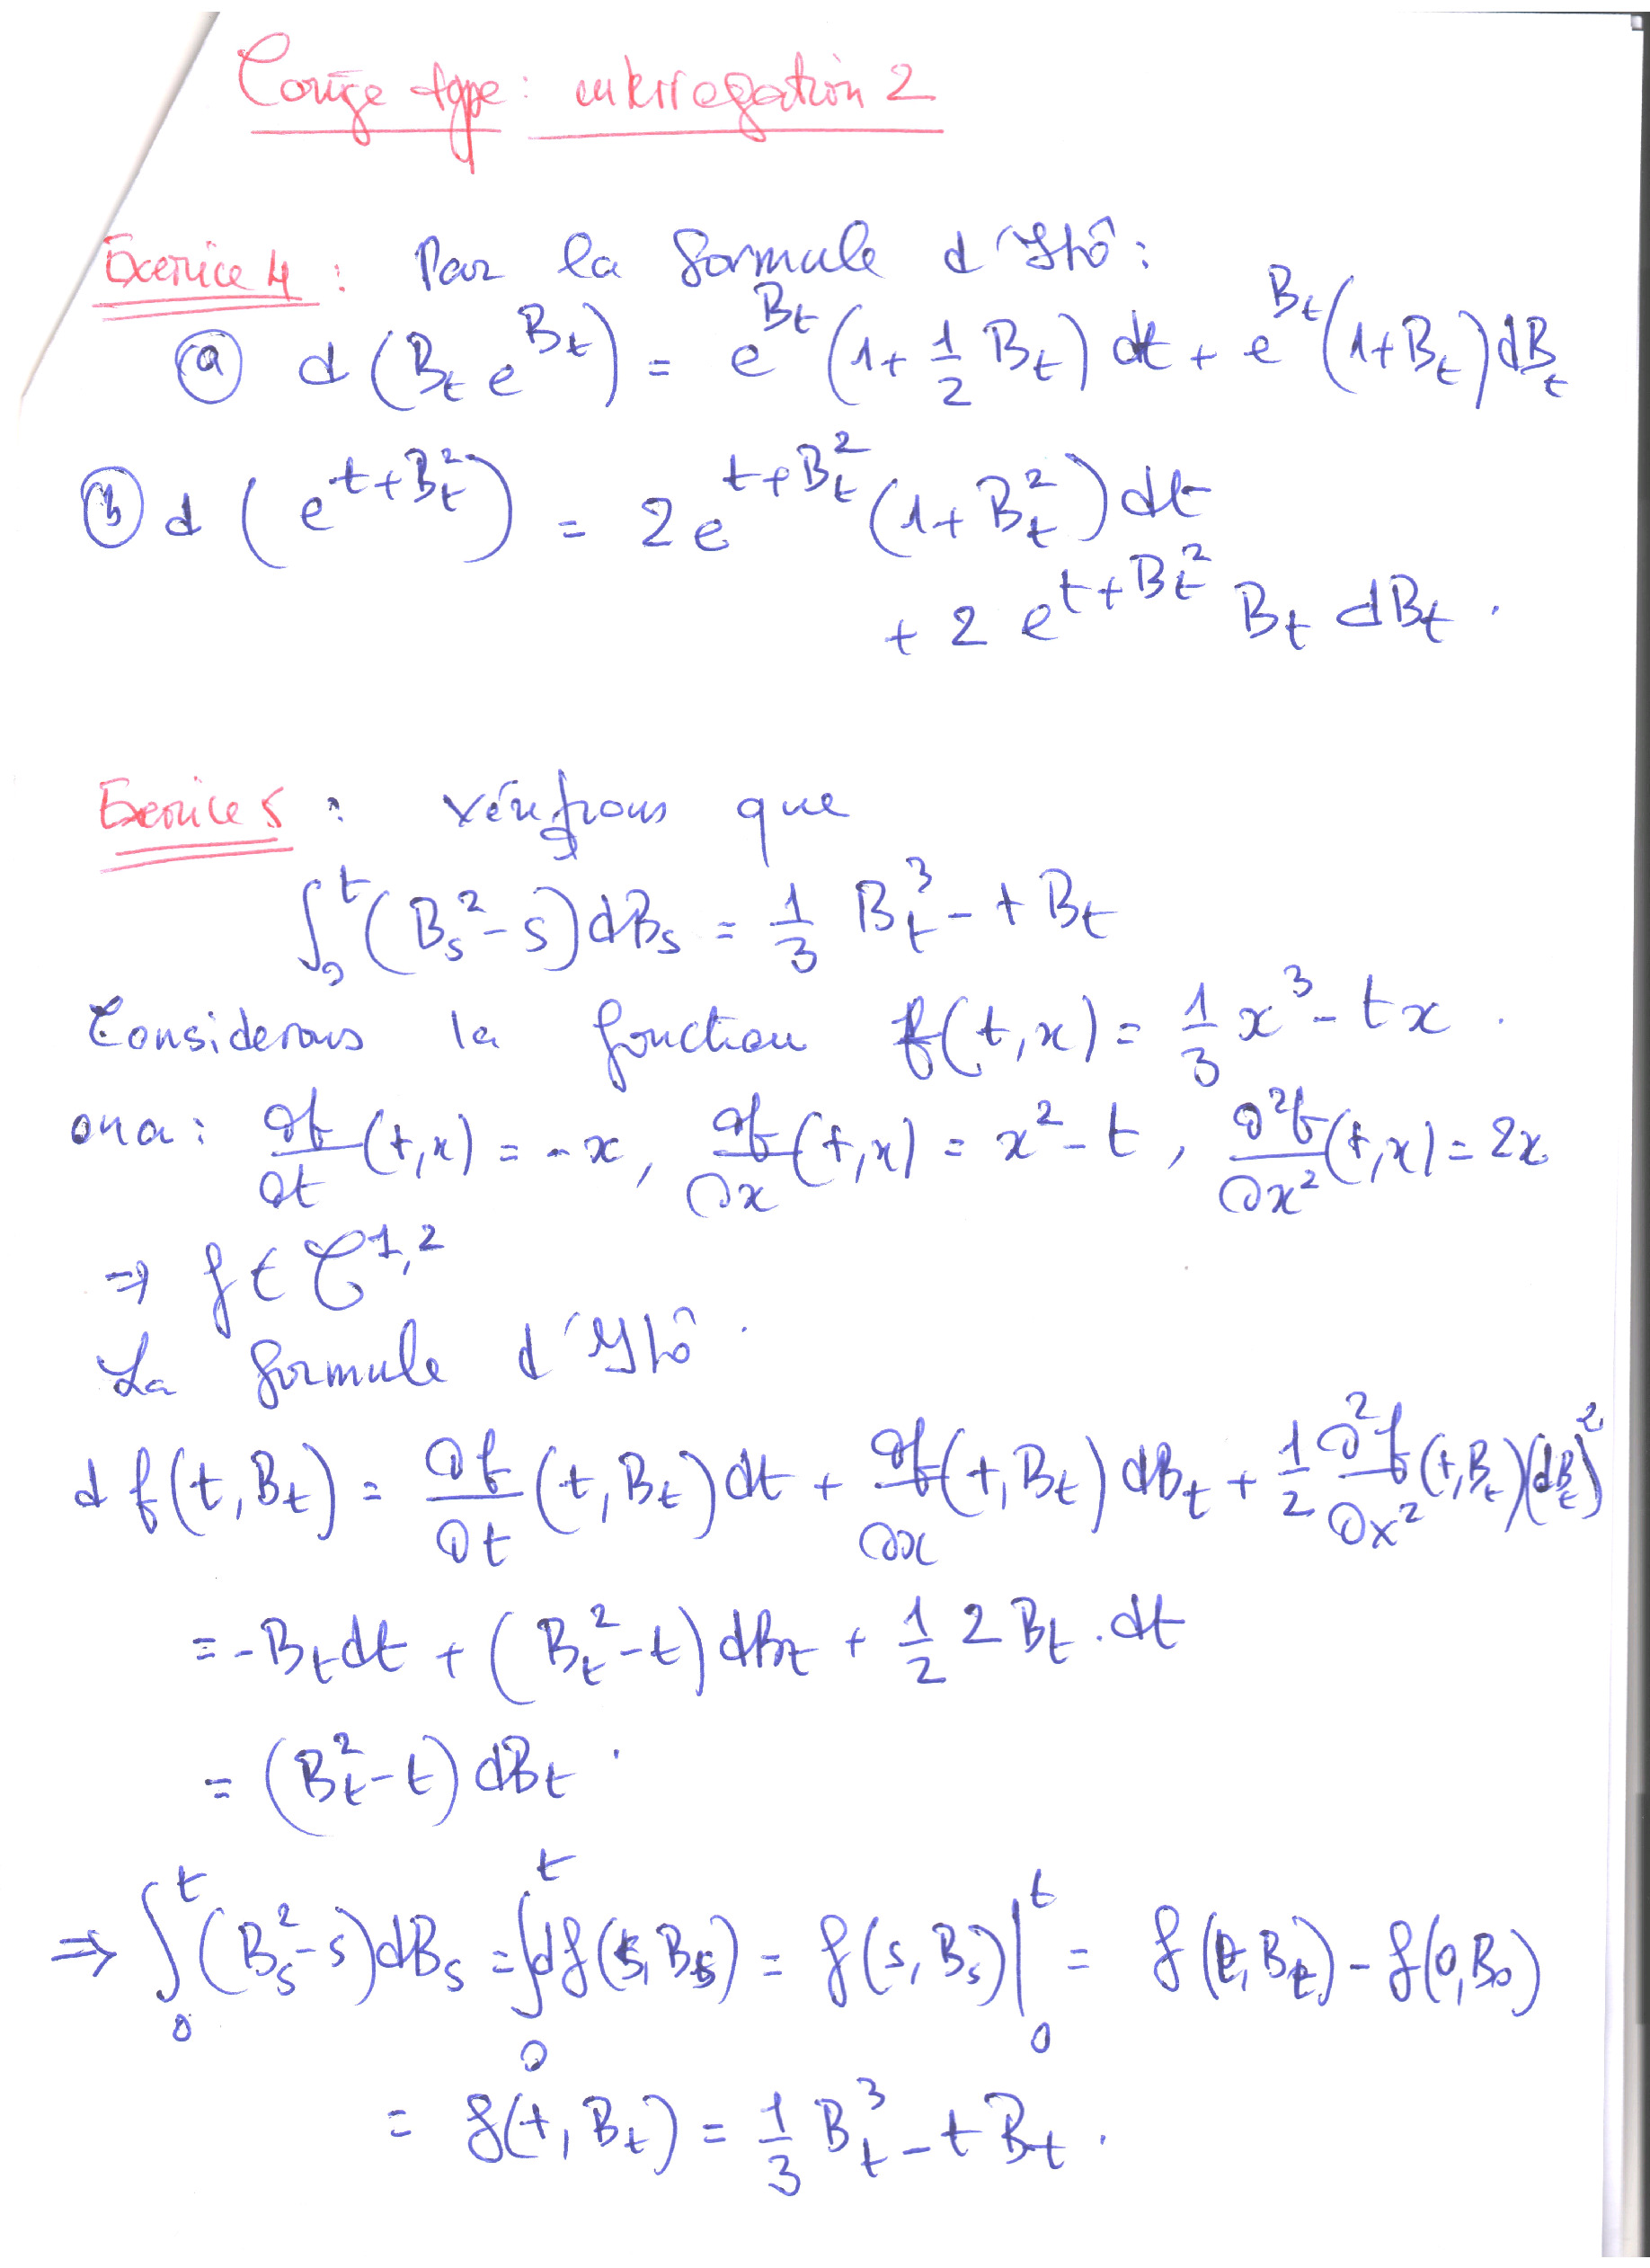 Corrigé type : interrogation 2
Exercice 4 : Par la formule d'Itô :
(a) d(B_t e^{B_t}) = e^{B_t}(1 + 1/2 B_t) dt + e^{B_t}(1+B_t) dB_t
(b) d(e^{t+B_t^2}) = 2 e^{t+B_t^2} (1+B_t^2) dt
+ 2 e^{t+B_t^2} B_t dB_t .
Exercice 5 : Vérifions que
∫_0^t (B_s^2 - s) dB_s = 1/3 B_t^3 - t B_t
Considerons la fonction f(t,x) = 1/3 x^3 - t x .
on a : ∂f/∂t (t,x) = - x, ∂f/∂x (t,x) = x^2 - t , ∂^2f/∂x^2 (t,x) = 2x
⇒ f ∈ C^{1,2}
La formule d'Itô .
d f(t,B_t) = ∂f/∂t (t,B_t) dt + ∂f/∂x (t,B_t) dB_t + 1/2 ∂^2f/∂x^2 (t,B_t)(dB_t)^2
= - B_t dt + (B_t^2 - t) dB_t + 1/2 2 B_t . dt
= (B_t^2 - t) dB_t .
⇒ ∫_0^t (B_s^2 - s) dB_s = ∫_0^t df(s,B_s) = f(s,B_s) |_0^t = f(t,B_t) - f(0,B_0)
= f(t,B_t) = 1/3 B_t^3 - t B_t .